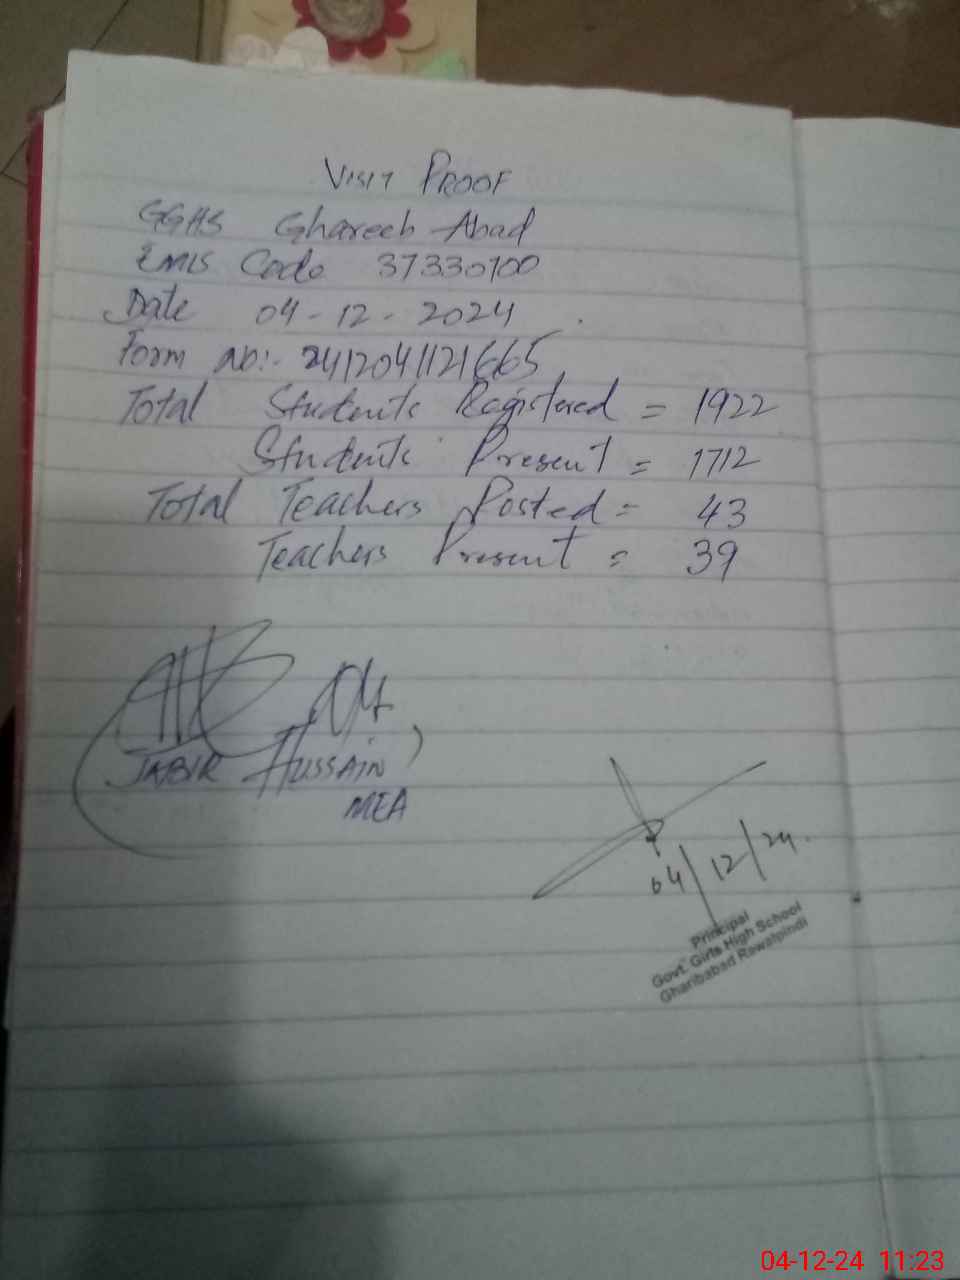 VISIT PROOF
GGHS Ghareeb Abad
EMIS Code 37330100
Date 04-12-2024
Form no:- 2412041121665
Total Students Registered = 1922
Students Present = 1712
Total Teachers Posted = 43
Teachers Present = 39
JABIR HUSSAIN
MEA
04/12/24.
Principal
Govt. Girls High School
Gharibabad Rawalpindi
04-12-24 11:23